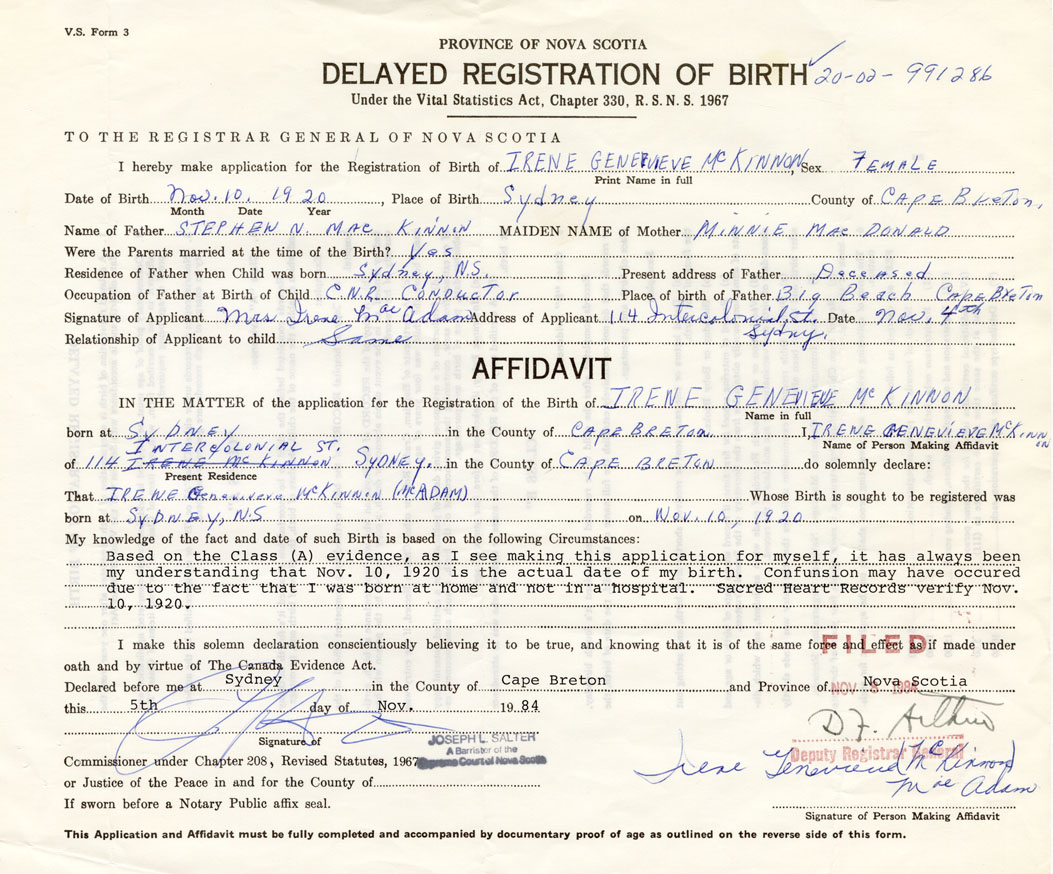 V.S. Form 3
PROVINCE OF NOVA SCOTIA
DELAYED REGISTRATION OF BIRTH 20-02-991286
Under the Vital Statistics Act, Chapter 330, R.S.N.S. 1967
TO THE REGISTRAR GENERAL OF NOVA SCOTIA
I hereby make application for the Registration of Birth of IRENE GENEVIEVE McKINNON, Sex FEMALE
Print Name in full
Date of Birth Nov. 10, 1920, Place of Birth Sydney County of CAPE BRETON,
Month Date Year
Name of Father STEPHEN N. MAC KINNIN MAIDEN NAME of Mother MINNIE MAC DONALD
Were the Parents married at the time of the Birth? Yes
Residence of Father when Child was born Sydney, N.S. Present address of Father Deceased
Occupation of Father at Birth of Child C.N.R. CONDUCTOR Place of birth of Father Big Beach CAPE BRETON
Signature of Applicant Mrs Irene Mac Adam Address of Applicant 114 Intercolonial St. Date Nov. 4th
Sydny.
Relationship of Applicant to child Same
AFFIDAVIT
IN THE MATTER of the application for the Registration of the Birth of IRENE GENEVIEVE McKINNON
Name in full
born at SYDNEY in the County of CAPE BRETON I, IRENE GENEVIEVE McKINNON
INTERCOLONIAL ST. Name of Person Making Affidavit
of 114 IRENE McKINNON SYDNEY. in the County of CAPE BRETON do solemnly declare:
Present Residence
That IRENE Genevieve McKINNON (McADAM) Whose Birth is sought to be registered was
born at SYDNEY, N.S. on Nov. 10, 1920
My knowledge of the fact and date of such Birth is based on the following Circumstances:
Based on the Class (A) evidence, as I see making this application for myself, it has always been
my understanding that Nov. 10, 1920 is the actual date of my birth. Confunsion may have occured
due to the fact that I was born at home and not in a hospital. Sacred Heart Records verify Nov.
10, 1920.
I make this solemn declaration conscientiously believing it to be true, and knowing that it is of the same force and effect as if made under
FILED
oath and by virtue of The Canada Evidence Act.
Declared before me at Sydney in the County of Cape Breton and Province of Nova Scotia
NOV
this 5th day of Nov. 1984
D.F. Arthur
Signature of JOSEPH L. SALTER
A Barrister of the
Deputy Registrar General
Commissioner under Chapter 208, Revised Statutes, 1967 Supreme Court of Nova Scotia
Irene Genevieve McKinnon
or Justice of the Peace in and for the County of
Mac Adam
If sworn before a Notary Public affix seal.
Signature of Person Making Affidavit
This Application and Affidavit must be fully completed and accompanied by documentary proof of age as outlined on the reverse side of this form.